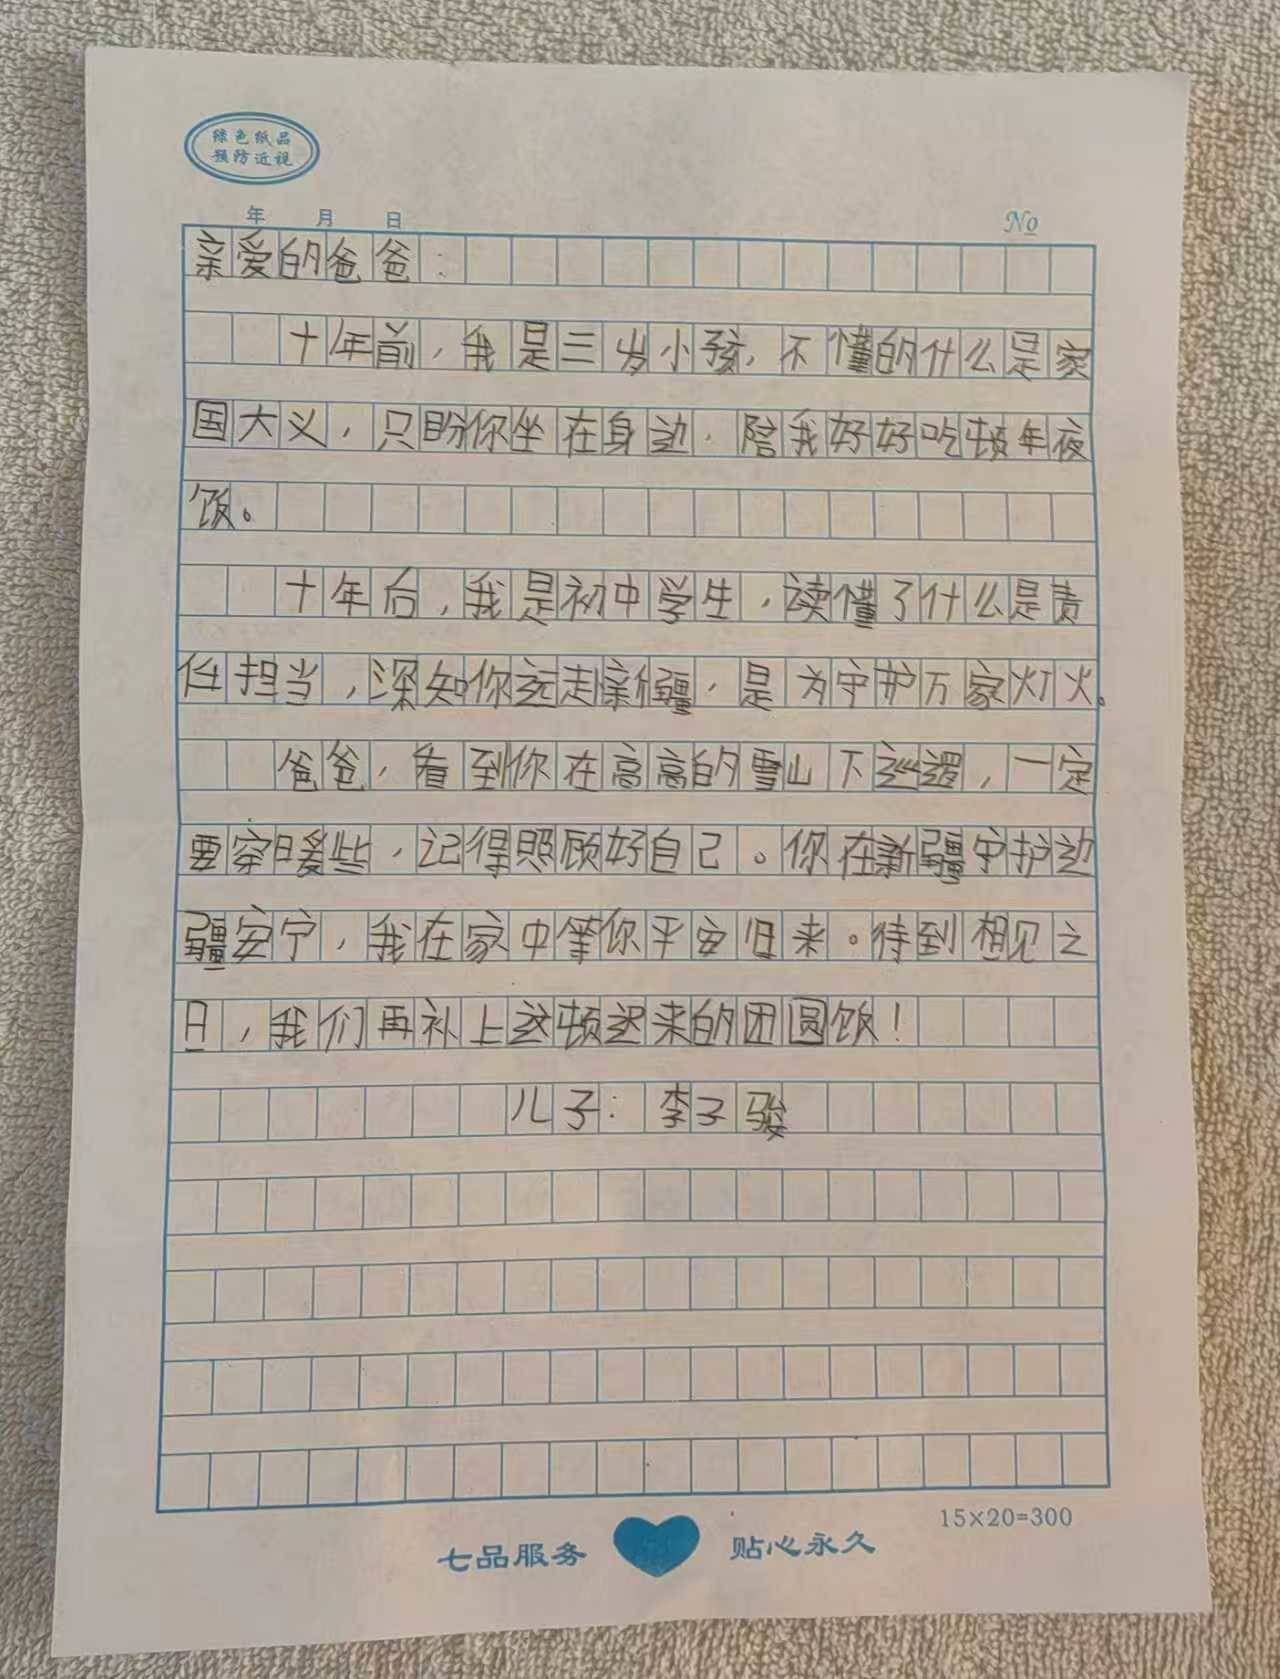 绿色纸品
预防近视
年 月 日
No
亲爱的爸爸：
十年前，我是三岁小孩，不懂的什么是家
国大义，只盼你坐在身边，陪我好好吃顿年夜
饭。
十年后，我是初中学生，读懂了什么是责
任担当，深知你远走新疆，是为守护万家灯火。
爸爸，看到你在高高的雪山下巡逻，一定
要穿暖些，记得照顾好自己。你在新疆守护边
疆安宁，我在家中等你平安归来。待到相见之
日，我们再补上这顿迟来的团圆饭！
儿子：李子骏
15×20=300
七品服务 贴心永久